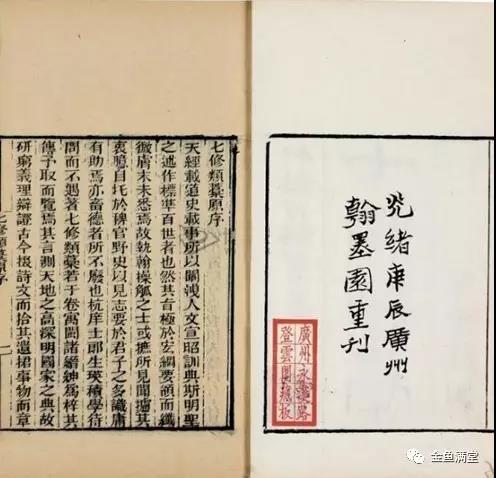 光緒庚辰廣州
翰墨園重刊
廣州永漢路
登雲閣藏板
七修類藁原序
夫經載道史載事所以闡洩人文宣昭訓典斯明聖
之述作標準百世者也然其旨極於宏綱要領而纖
微膚末未悉焉故執翰操觚之士或摭所見聞攄其
衷臆自托於稗官野史以見志要於君子之多識庸
有助焉亦畜德者所不廢也杭庠士郎生瑛積學待
問而不遇著七修類藁若干卷寓閩諸縉紳爲梓其
傳予取而覽焉其言測天地之高深明國家之典故
研窮義理辯證古今掇詩文而拾其遺捃事物而章
七修類藁原序
一
金鱼满堂